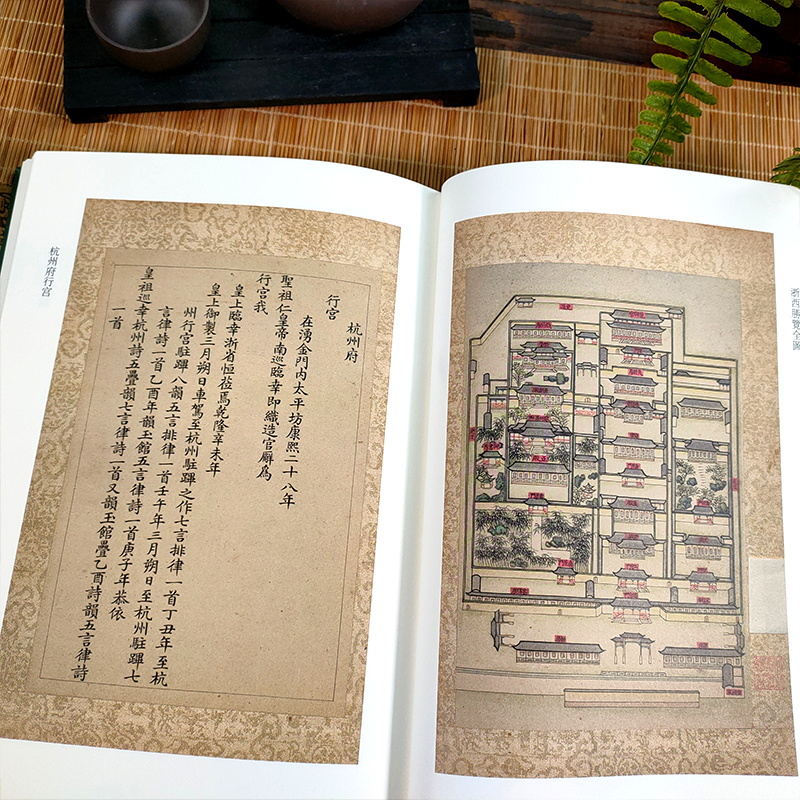 杭州府行宮
杭州府
行宮
在湧金門內太平坊康熙二十八年
聖祖仁皇帝南巡臨幸即織造官廨為
行宮我
皇上臨幸浙省恒蒞焉乾隆辛未年
皇上御製三月朔日車駕至杭州駐蹕之作七言排律一首丁丑年至杭
州行宮駐蹕八韻五言排律一首壬午年三月朔日至杭州駐蹕七
言律詩一首乙酉年韻玉館五言律詩一首庚子年恭依
皇祖巡幸杭州詩五疊韻七言律詩一首又韻玉館疊乙酉詩韻五言律詩
一首
浙西勝覽全圖